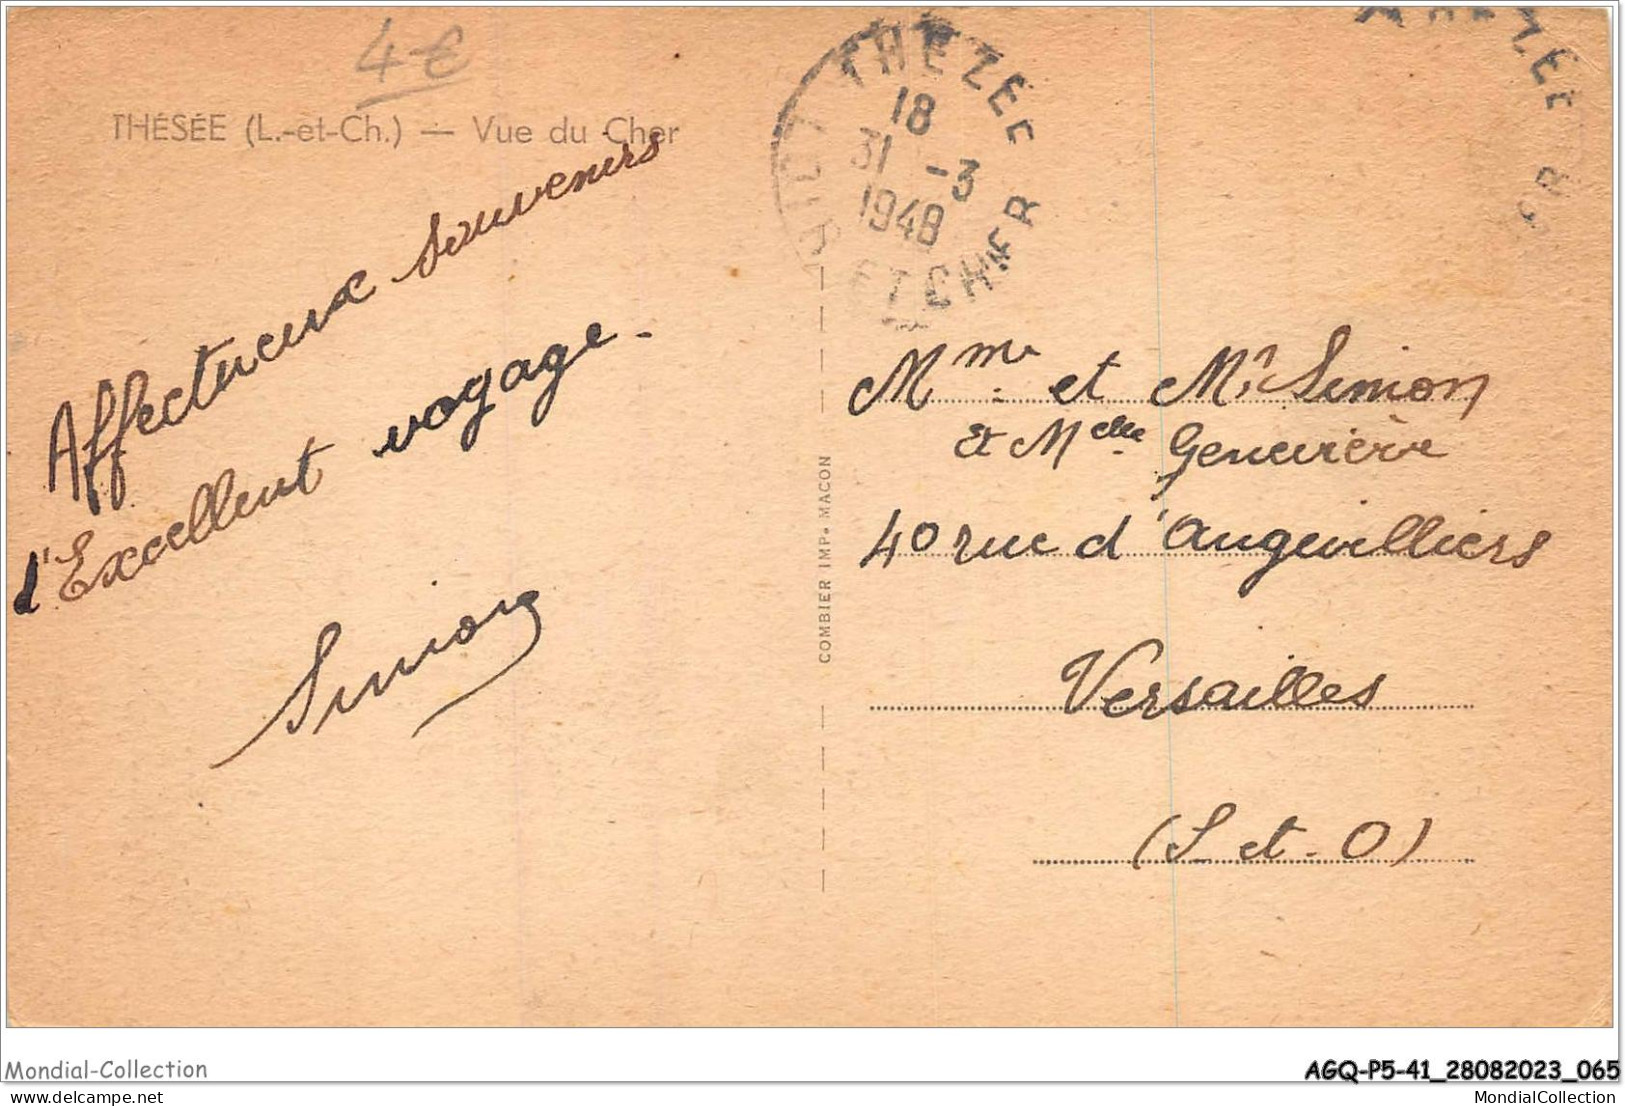 4€
THÉSÉE (L.-et-Ch.) — Vue du Cher
Affectueux souvenirs
d'Excellent voyage.
Simon
THEZEE
18
31 -3
1948
ET CHER
ZEE
COMBIER IMP. MACON
Mme et Mr Simon
& Melle Geneviève
40 rue d'Angivilliers
Versailles
(S. et. O)
Mondial-Collection
AGQ-P5-41_28082023_065
MondialCollection